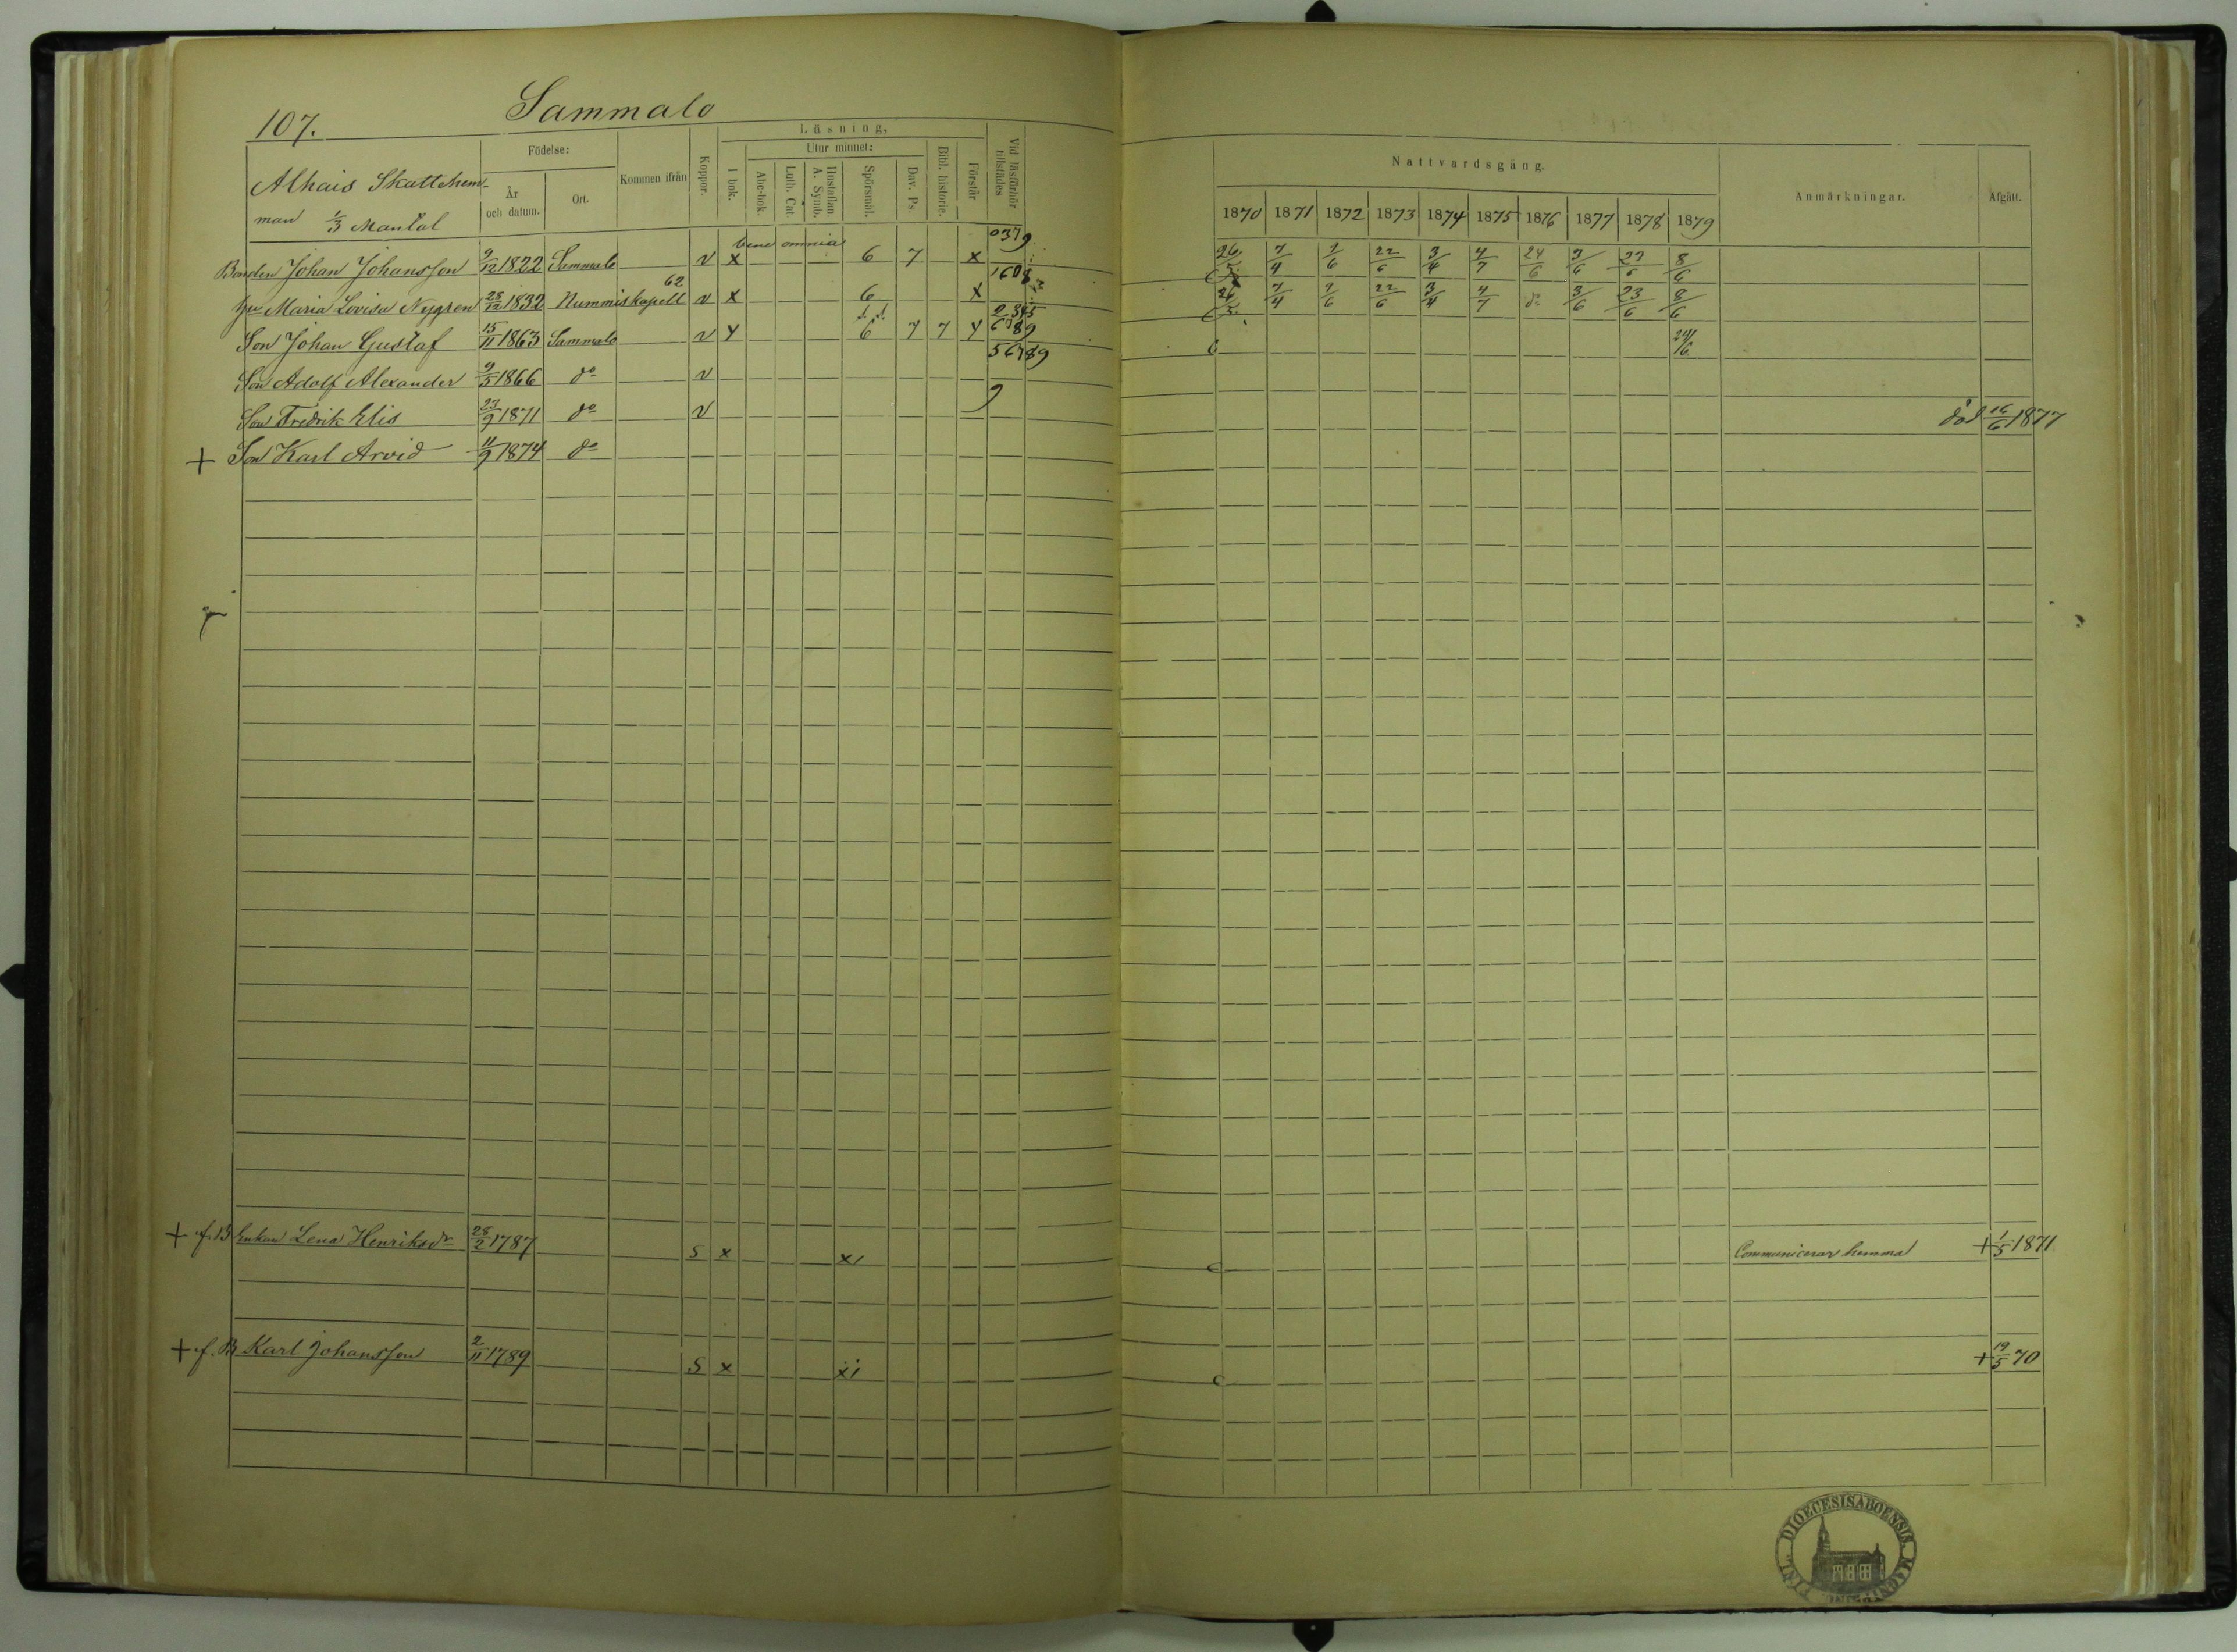 107. Sammalo
Alhais Skattehem-
man 1/3 Mantal
Födelse:
År och datum.
Ort.
Kommen ifrån
Koppor.
Läsning,
I bok.
Utur minnet:
Abc-bok.
Luth. Cat.
Hustaflan. A. Symb.
Spörsmål.
Dav. Ps.
Bibl. historie.
Förstår
Vid läsförhör tillstädes
Nattvardsgång.
1870 1871 1872 1873 1874 1875 1876 1877 1878 1879
Anmärkningar.
Afgått.
Bonden Johan Johansson 9/12 1822 Sammalo v x bene omnia 6 7 x 0379 26/5 7/4 2/6 22/6 3/4 4/7 24/6 3/6 23/6 8/6
Hu Maria Lovisa Nygren 28/12 1832 Nummis kapell 62 v x 6 x 1608 26/5 7/4 2/6 22/6 3/4 4/7 do 3/6 23/6 8/6
Son Johan Gustaf 15/11 1863 Sammalo v x 6 7 7 x 2345 6789 c 24/6
Son Adolf Alexander 9/5 1866 do v 56789
Son Fredrik Elis 23/9 1871 do v 9
+ Son Karl Arvid 11/9 1874 do död 16/6 1877
+ f. B Enkan Lena Henriksdr 28/2 1787 s x x1 c Communicerar hemma + 1/5 1871
+ f. B Karl Johansson 2/11 1789 s x x1 c + 19/5 70
DIOECESIS ABOENSIS